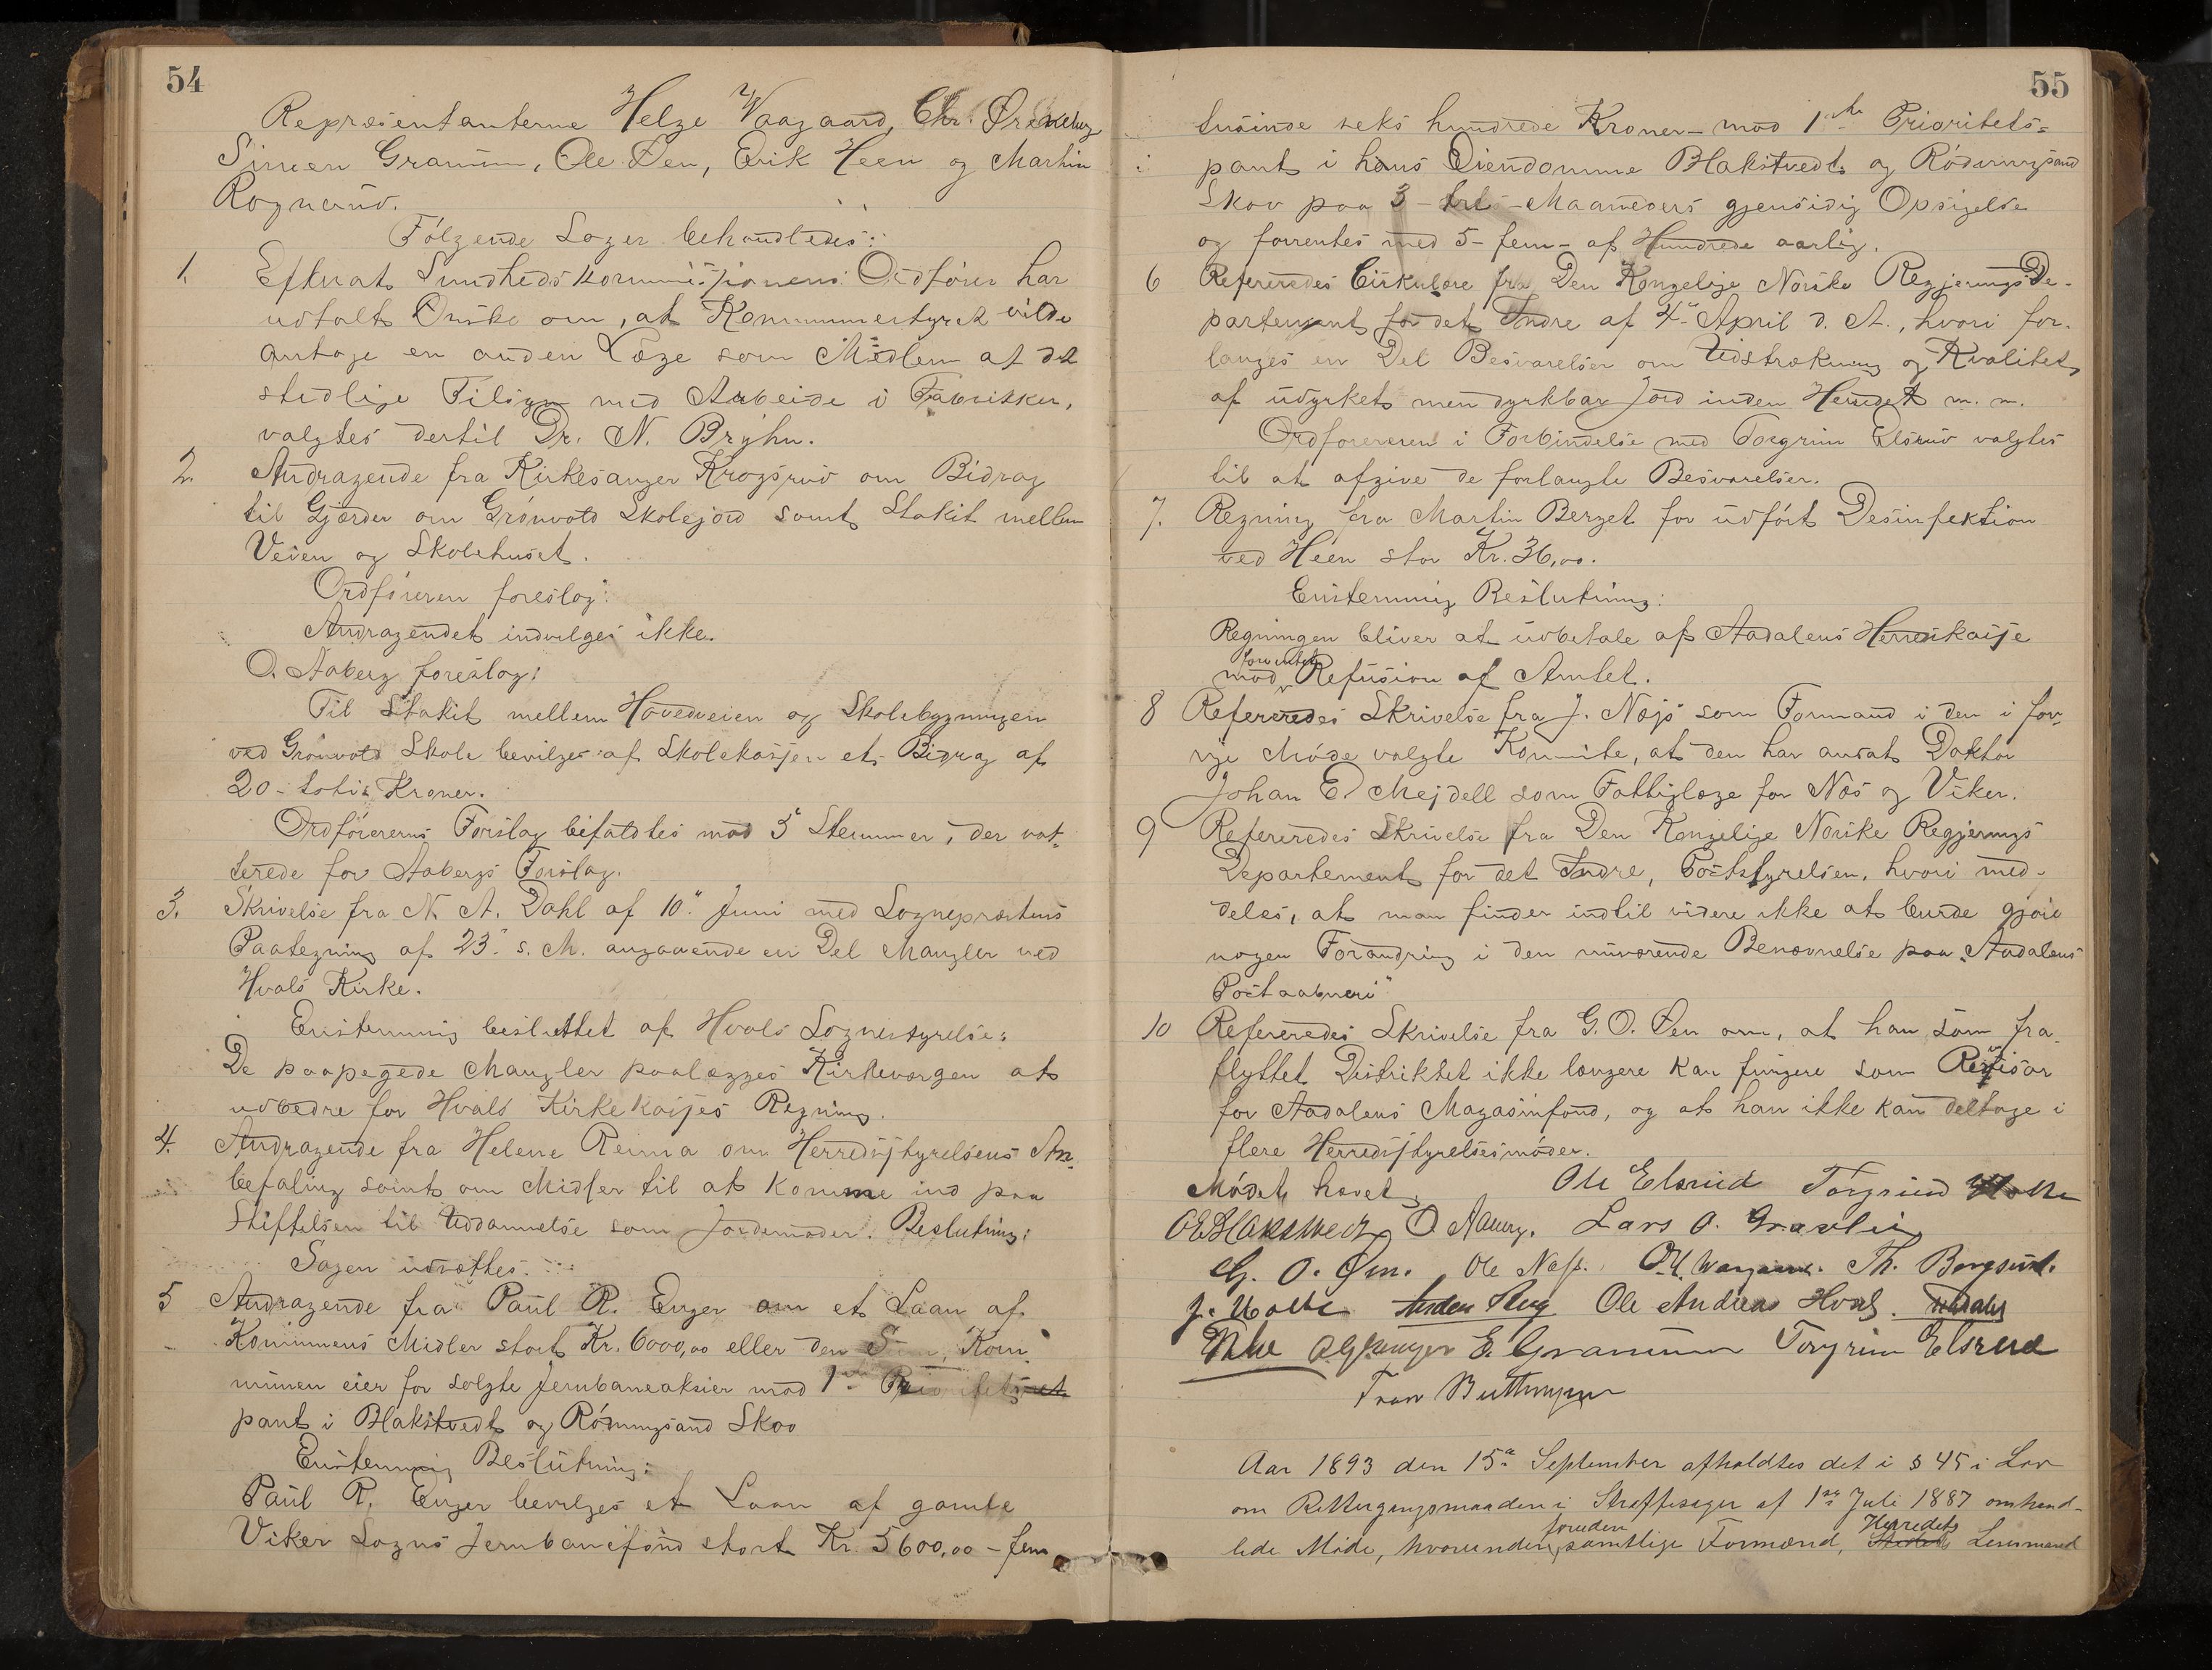 54
Repræsentanterne Helge Waagaard, Chr.
Simen Granum, Ole Øen, Erik Heen og Martin
Rognerud.
Følgende Sager behandledes:
1. Efterat Sundhedskommissionens Ordfører har
udtalt Ønske om, at Kommunestyret vilde
antage en anden Læge som Medlem af det
stedlige Tilsyn med Arbeide i Fabrikker,
valgtes dertil Dr. N. Bryhn.
2. Andragende fra Kirkesanger Krogsrud om Bidrag
til Gjærder om Grønvold Skolejord samt Stakit mellem
Veien og Skolehuset.
Ordføreren foreslog:
Andragendet indvilges ikke.
O. Aaberg foreslog:
Til Stakit mellem Hovedveien og Skolebygningen
ved Grønvold Skole bevilges af Skolekassen et Bidrag af
20 - totis Kroner.
Ordførerens Forslag bifaldtes mod 5 Stemmer, der vot-
terede for Aabergs Forslag.
3. Skrivelse fra N. A. Dahl af 10" Juni med Sogneprestens
Paategning af 23" s. M. angaaende en Del Mangler ved
Hvals Kirke.
Enstemmig besluttet af Hvals Sognestyrelse:
De paapegede Mangler paalægges Kirkeværgen at
udbedre for Hvals Kirkekasses Regning.
4. Andragende fra Helene Rema om Herredsstyrelsens An-
befaling samt om Midler til at komme ind paa
Stiftelsen til Uddannelse som Jordemoder. Beslutning:
Sagen udsættes.
5 Andragende fra Paul R. Enger om et Laan af
Kommunens Midler stort Kr. 6000,00 eller den Kom-
munen eier for solgte Jernbaneaksier mod 1ste Prioritets
pant i Blakstvedt og Rønningsand Skov
Enstemmig Beslutning:
Paul R. Enger bevilges et Laan af gamle
Viker Sogns Jernbanefond stort Kr. 5600,00 - fem
55
tusinde seks hundrede Kroner - mod 1ste Prioritets=
pant i hans Eiendomme Blakstvedt og Rønningsand
Skov paa 3 - tre - Maaneders gjensidig Opsigelse
og forrentes med 5 - fem - af Hundrede aarlig.
6 Refereredes Cirkulære fra Den Kongelige Norske Regjerings De-
partement for det Indre af 4" April d. A., hvori for-
langes en Del Besvarelser om Udstrækning og Kvalitet
af udyrket men dyrkbar Jord inden Herredet m. m.
Ordføreren i Forbindelse med Torgrim Elsrud valgtes
til at afgive de forlangte Besvarelser.
7. Regning fra Martin Berget for udført Desinfektion
ved Héen stor Kr. 36,00.
Enstemmig Beslutning:
Regningen bliver at udbetale af Aadalens Herredskasse
mod forventet Refusion af Amtet.
8 Refereredes Skrivelse fra J. Næss som Formand i den i for-
rige Møde valgte Komite, at den har antat Doktor
Johan E. Mejdell som Fattiglæge for Næs og Viker.
9 Refereredes Skrivelse fra Den Kongelige Norske Regjerings
Departement for det Indre, Poststyrelsen, hvori med-
deles, at man finder indtil videre ikke at burde gjøre
nogen Forandring i den nuværende Benævnelse paa "Aadalens
Postaabneri"
10 Refereredes Skrivelse fra G. O. Øen om, at han som fra-
flyttet Distriktet ikke længere kan fungere som Revisor
for Aadalens Magasinfond, og at han ikke kan deltage i
flere Herredsstyrelsesmøder.
Mødet hævet
Ole Elsrud Torgrim Holte
OE Blakstvedt O. Aaberg. Lars O. Graslie
G. O. Øen. Ole Næss. Th. Bergsund.
J. Holte Anders Haug Ole Andreas Hval.
E. Granum Torgrim Elsrud
Aar 1893 den 15de September afholdtes det i § 45 i Lov
om Rettergangsmaaden i Straffesager af 1ste Juli 1887 omhand-
lede Møde, hvorunder, foruden samtlige Formænd, Herredets Lensmænd